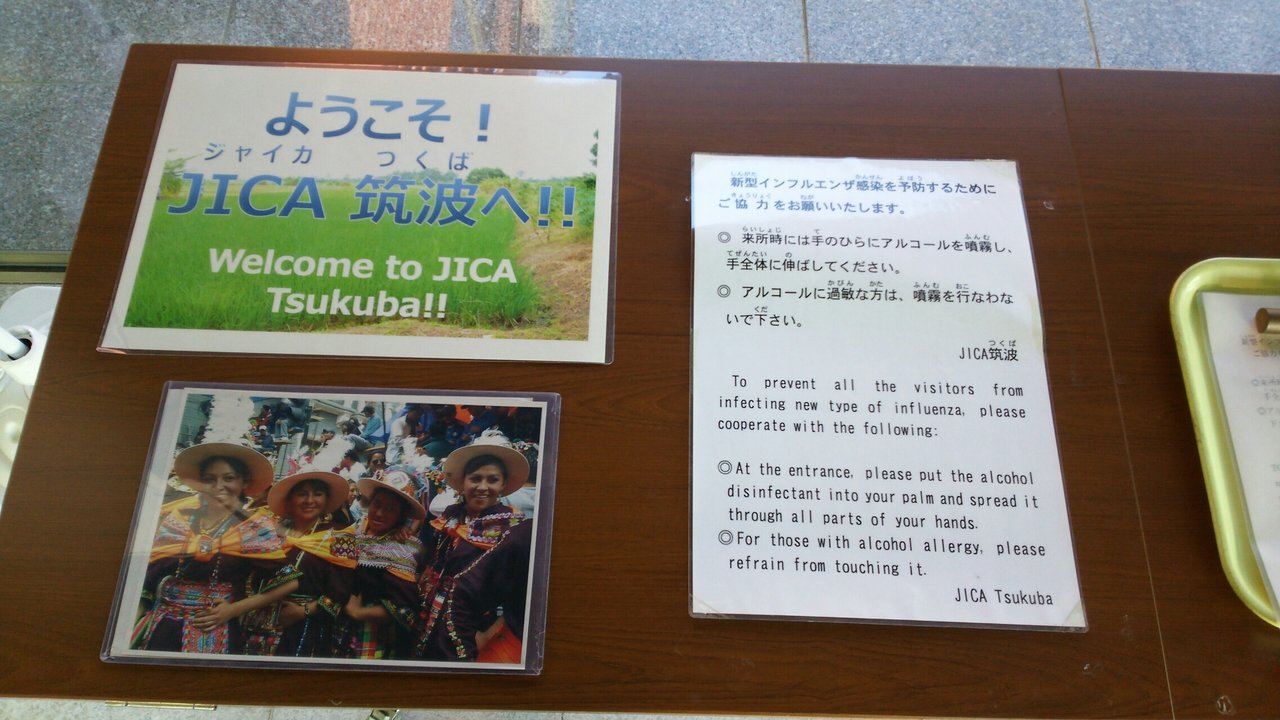 ようこそ！
ジャイカ つくば
JICA 筑波へ!!
Welcome to JICA
Tsukuba!!
しんがた かんせん よぼう
新型インフルエンザ感染を予防するために
きょうりょく ねが
ご協力をお願いいたします。
らいしょじ て ふんむ
◎ 来所時には手のひらにアルコールを噴霧し、
てぜんたい の
手全体に伸ばしてください。
かびん かた ふんむ おこ
◎ アルコールに過敏な方は、噴霧を行なわな
くだ
いで下さい。
つくば
JICA筑波
To prevent all the visitors from
infecting new type of influenza, please
cooperate with the following:
◎At the entrance, please put the alcohol
disinfectant into your palm and spread it
through all parts of your hands.
◎For those with alcohol allergy, please
refrain from touching it.
JICA Tsukuba